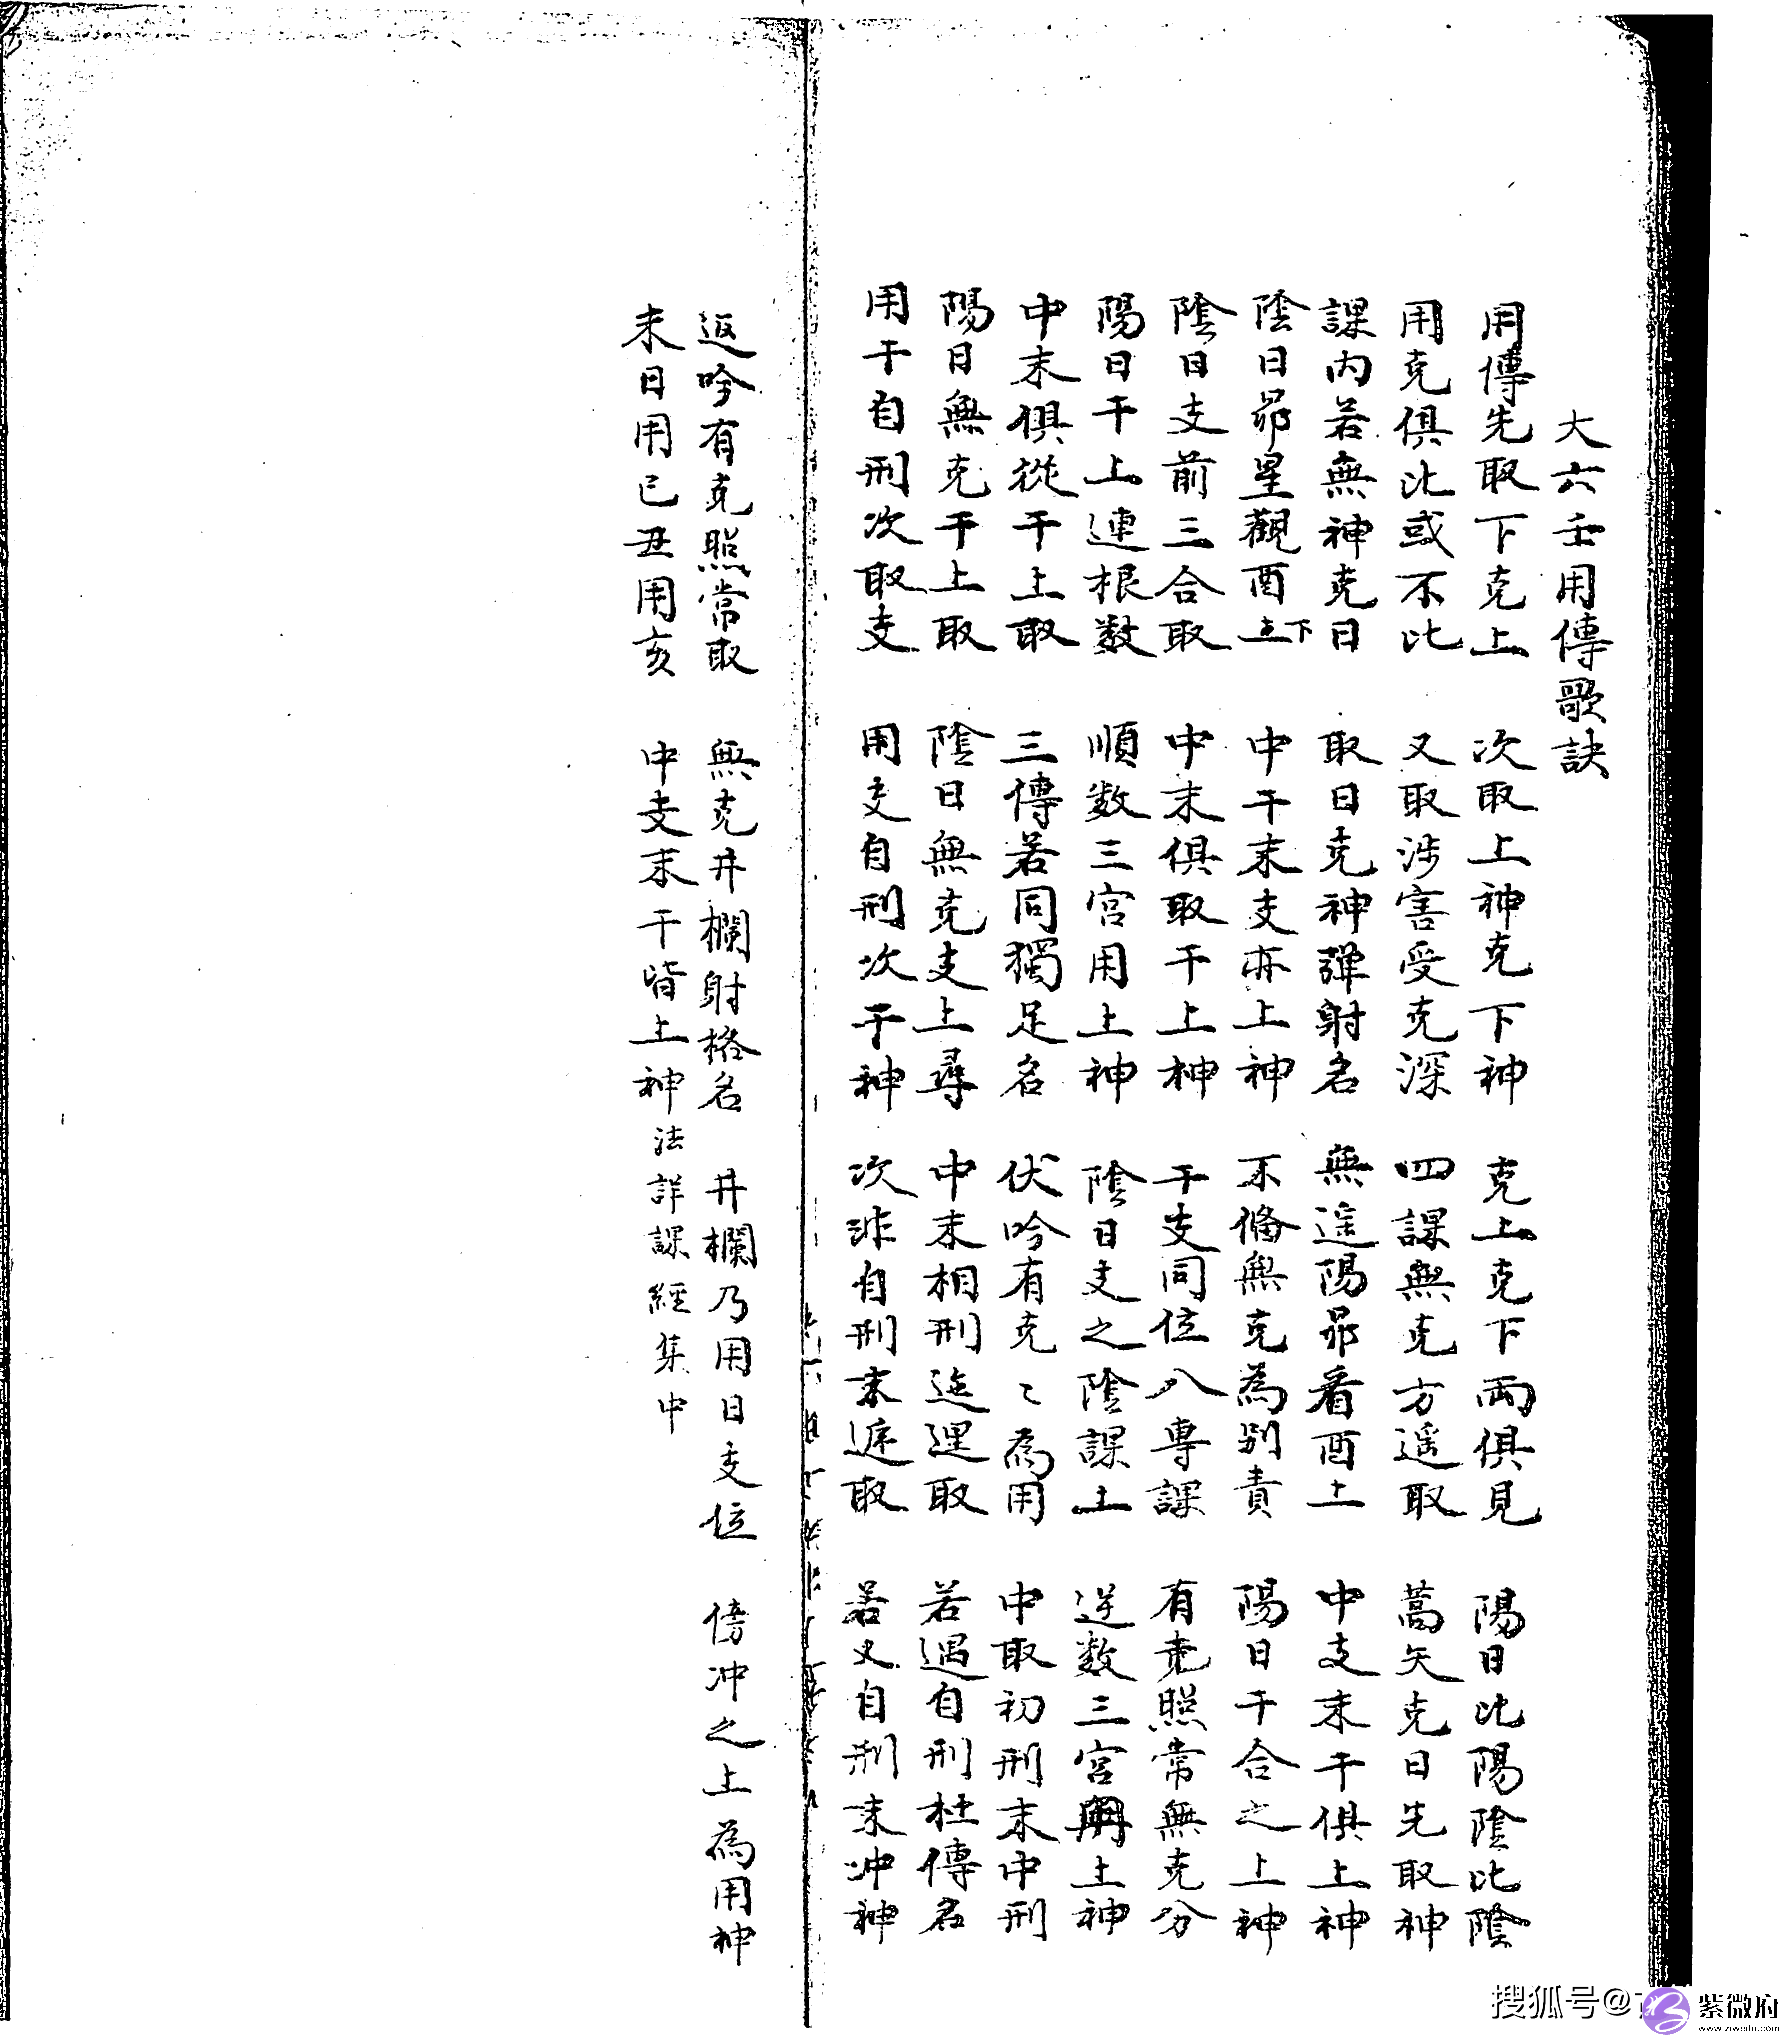 大六壬用傳歌訣
用傳先取下克上　次取上神克下神　克上克下兩俱見　陽日比陽陰比陰
用克俱比或不比　又取涉害受克深　四課無克方遥取　蒿矢克日先取神
課内若無神克日　取日克神彈射名　無遥陽昴看酉上　中支末干俱上神
陰日昴星觀酉下　中干末支亦上神　不俻無克為别責　陽日干合之上神
陰日支前三合取　中末俱取干上神　干支同位八專課　有克照常無克分
陽日干上連根数　順数三宫用上神　陰日支之陰課上　逆数三宫用上神
中末俱從干上取　三傳若同獨足名　伏吟有克〻為用　中取初刑末中刑
陽日無克干上取　陰日無克支上尋　中末相刑迤逞取　若遇自刑杜傳名
用干自刑次取支　用支自刑次干神　次非自刑末遞取　若又自刑末冲神
返吟有克照常取　無克井欄射格名　井欄乃用日支位　傍冲之上為用神
未日用巳丑用亥　中支末干皆上神　法詳課經集中
搜狐号@
紫微府
www.ziweifu.com